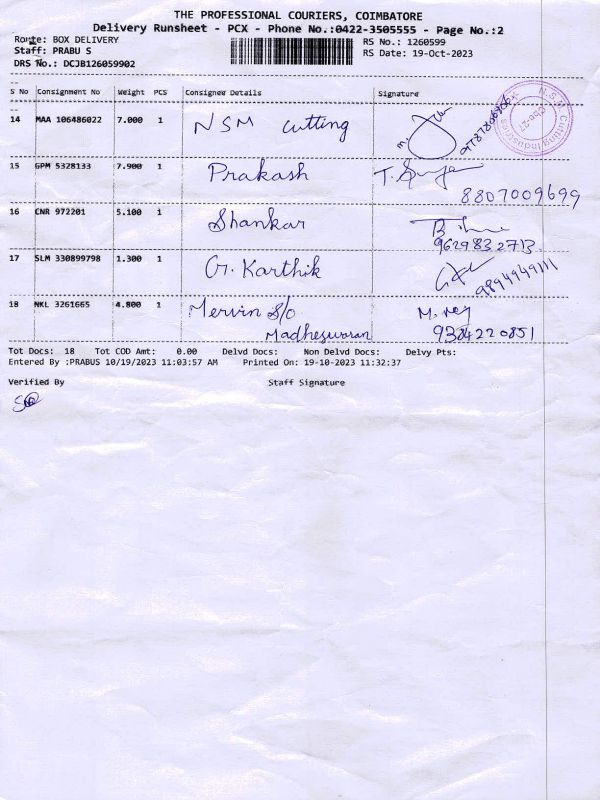 THE PROFESSIONAL COURIERS, COIMBATORE
Delivery Runsheet - PCX - Phone No.:0422-3505555 - Page No.:2
Route: BOX DELIVERY
RS No.: 1260599
Staff: PRABU S
RS Date: 19-Oct-2023
DRS No.: DCJB126059902
S No Consignment No Weight PCS Consignee Details Signature
14 MAA 106486022 7.000 1 NSM Cutting
N.S.M Cutting Industries
Cbe-27
15 GPM 5328133 7.900 1 Prakash
8807009699
16 CNR 972201 5.100 1 Shankar
9629832713
17 SLM 330899798 1.300 1 G. Karthik
9894949111
18 NKL 3261665 4.800 1 Mervin S/o
Madheswaran
9384220851
Tot Docs: 18 Tot COD Amt: 0.00 Delvd Docs: Non Delvd Docs: Delvy Pts:
Entered By :PRABUS 10/19/2023 11:03:57 AM Printed On: 19-10-2023 11:32:37
Verified By Staff Signature